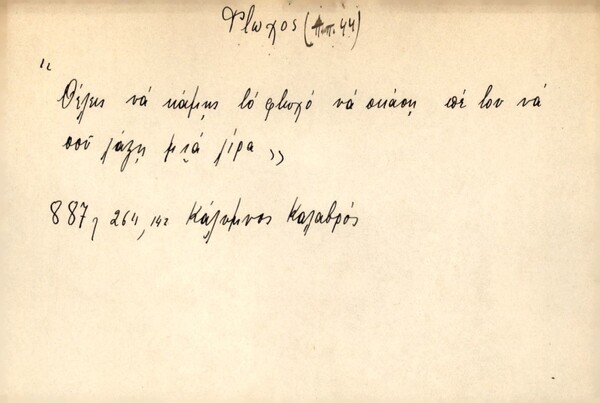 Φτωχός (π.π. 44)
"Θέλεις νά κάμῃς τό φτωχό νά σκάσῃ πέ του νά
σοῦ λάξῃ μιά λίρα"
887, 264, 142 Κάλυμνος Καλαβρός